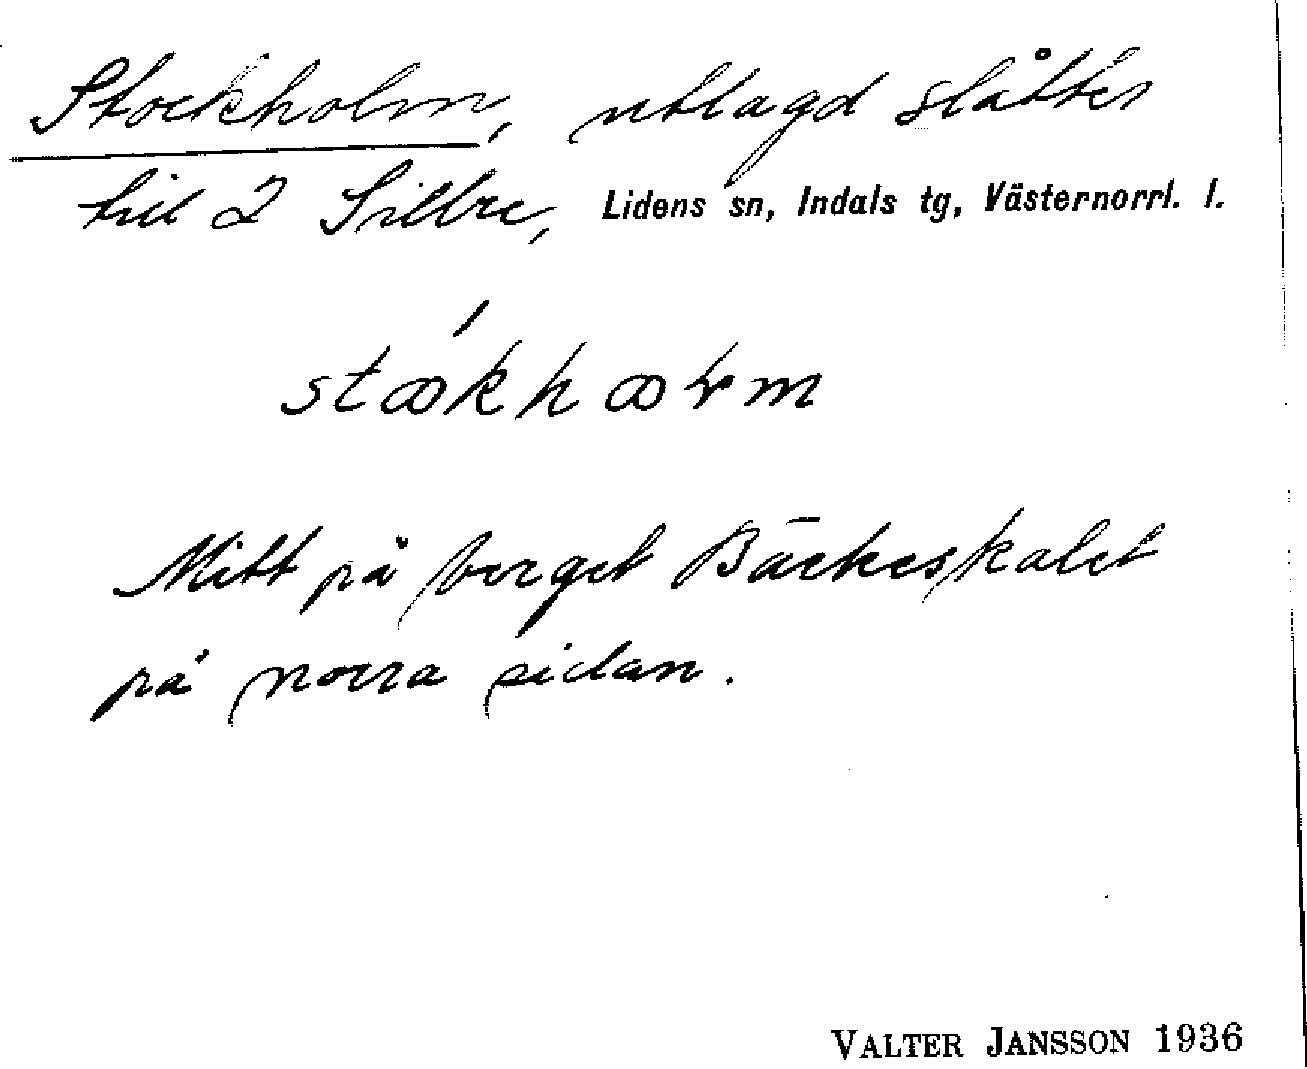 Stockholm, utlagd slåtter
till 2 Sillre, Lidens sn, Indals tg, Västernorrl. l.
Mitt på berget Bäckeskalet
på norra sidan.
VALTER JANSSON 1936